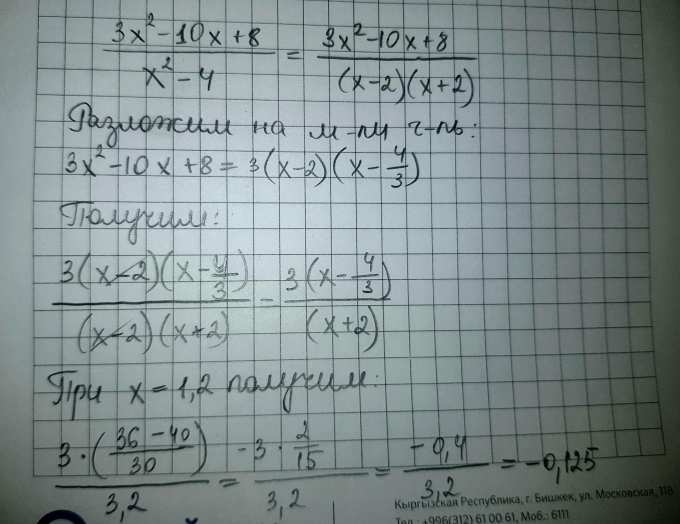 3x²-10x+8 / x²-4 = 3x²-10x+8 / (x-2)(x+2)
Разложим на м-ли ч-ль:
3x²-10x+8 = 3(x-2)(x-4/3)
Получим:
3(x-2)(x-4/3) / (x-2)(x+2) = 3(x-4/3) / (x+2)
При x = 1,2 получим:
3·((36-40)/30) / 3,2 = -3·2/15 / 3,2 = -0,4 / 3,2 = -0,125
Кыргызская Республика, г. Бишкек, ул. Московская, 118
Тел.: +996(312) 61 00 61, Моб.: 6111